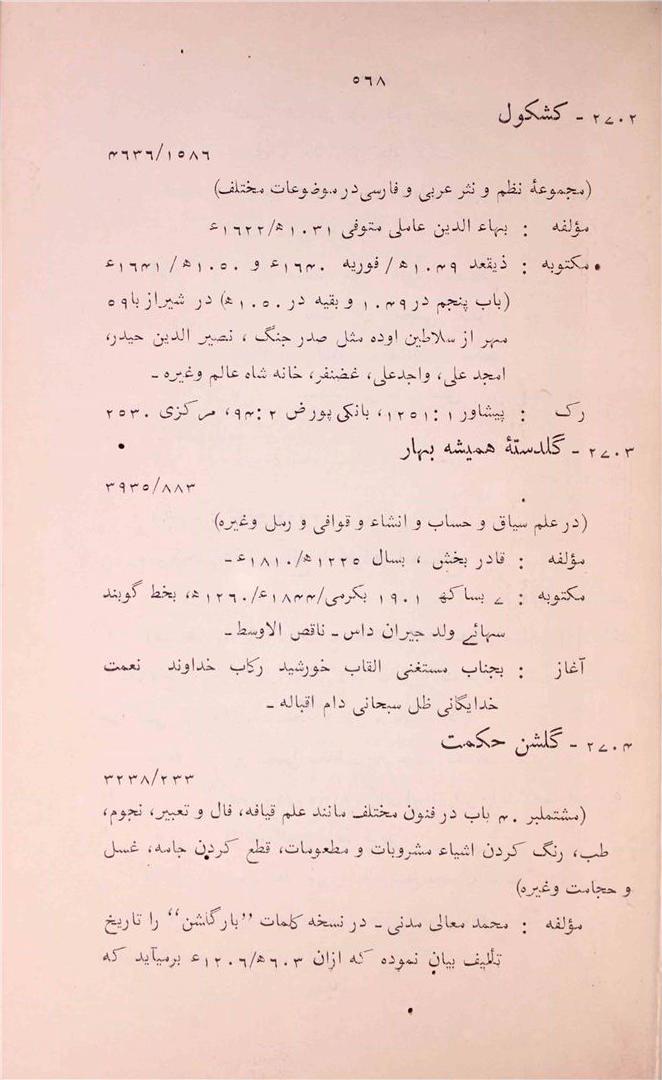 ٥٦٨
٢٧٠٢ - کشکول
۴٦٣٦/١٥٨٦
(مجموعهٔ نظم و نثر عربی و فارسی در موضوعات مختلف)
مؤلفه : بهاء الدین عاملی متوفی ١٠٣١ھ/١٦٢٢ء
مکتوبه : ذیقعد ١٠۴٩ھ/ فوریه ١٦۴٠ء و ١٠٥٠ھ/ ١٦۴١ء
(باب پنجم در ١٠۴٩ و بقیه در ١٠٥٠ھ) در شیراز با ٥٩
مهر از سلاطین اوده مثل صدر جنگ ، نصیر الدین حیدر،
امجد علی، واجد علی، غضنفر، خانه شاه عالم وغیره ـ
رک : پشاور ١ : ١٢٥١، بانکی پور ض ٢ : ٩۴، مرکزی ٢٥٣٠
٢٧٠٣ - گلدستهٔ همیشه بهار
٣٩٣٥/٨٨٣
(در علم سیاق و حساب و انشاء و قوافی و رمل وغیره)
مؤلفه : قادر بخش ، بسال ١٢٢٥ھ/١٨١٠ء ـ
مکتوبه : ٧ بساکھ ١٩٠١ بکرمی/١٨۴۴ء/١٢٦٠ھ، بخط گوبند
سہائے ولد جیران داس ـ ناقص الاوسط ـ
آغاز : بجناب مستغنی القاب خورشید رکاب خداوند نعمت
خدایگانی ظل سبحانی دام اقباله ـ
٢٧٠۴ - گلشن حکمت
٣٢٣٨/٢٣٣
(مشتملبر ۴٠ باب در فنون مختلف مانند علم قیافه، فال و تعبیر، نجوم،
طب، رنگ کردن اشیاء مشروبات و مطعومات، قطع کردن جامه، غسل
و حجامت وغیره)
مؤلفه : محمد معالی مدنی ـ در نسخه کلمات ”بار گلشن“ را تاریخ
تألیف بیان نموده که ازان ٦٠٣ھ/١٢٠٦ء برمیآید که